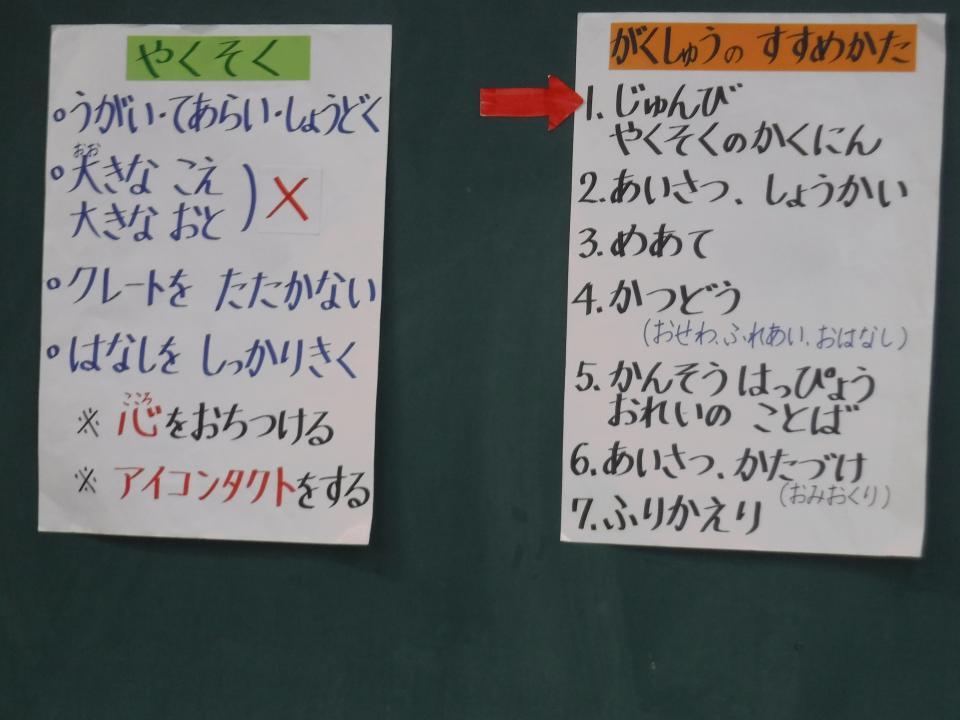 やくそく
・うがい・てあらい・しょうどく
おお
・大きな こえ
大きな おと
)×
・クレートを たたかない
・はなしを しっかりきく
こころ
※ 心をおちつける
※ アイコンタクトをする
がくしゅうの すすめかた
1. じゅんび
やくそくのかくにん
2. あいさつ、しょうかい
3. めあて
4. かつどう
(おせわ、ふれあい、おはなし)
5. かんそう はっぴょう
おれいの ことば
6. あいさつ、かたづけ
(おみおくり)
7. ふりかえり